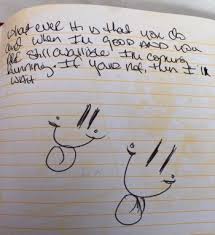 what ever it is that you do
and when I'm good and you
are still available I'm coming
running. If your not, then I'll
wait